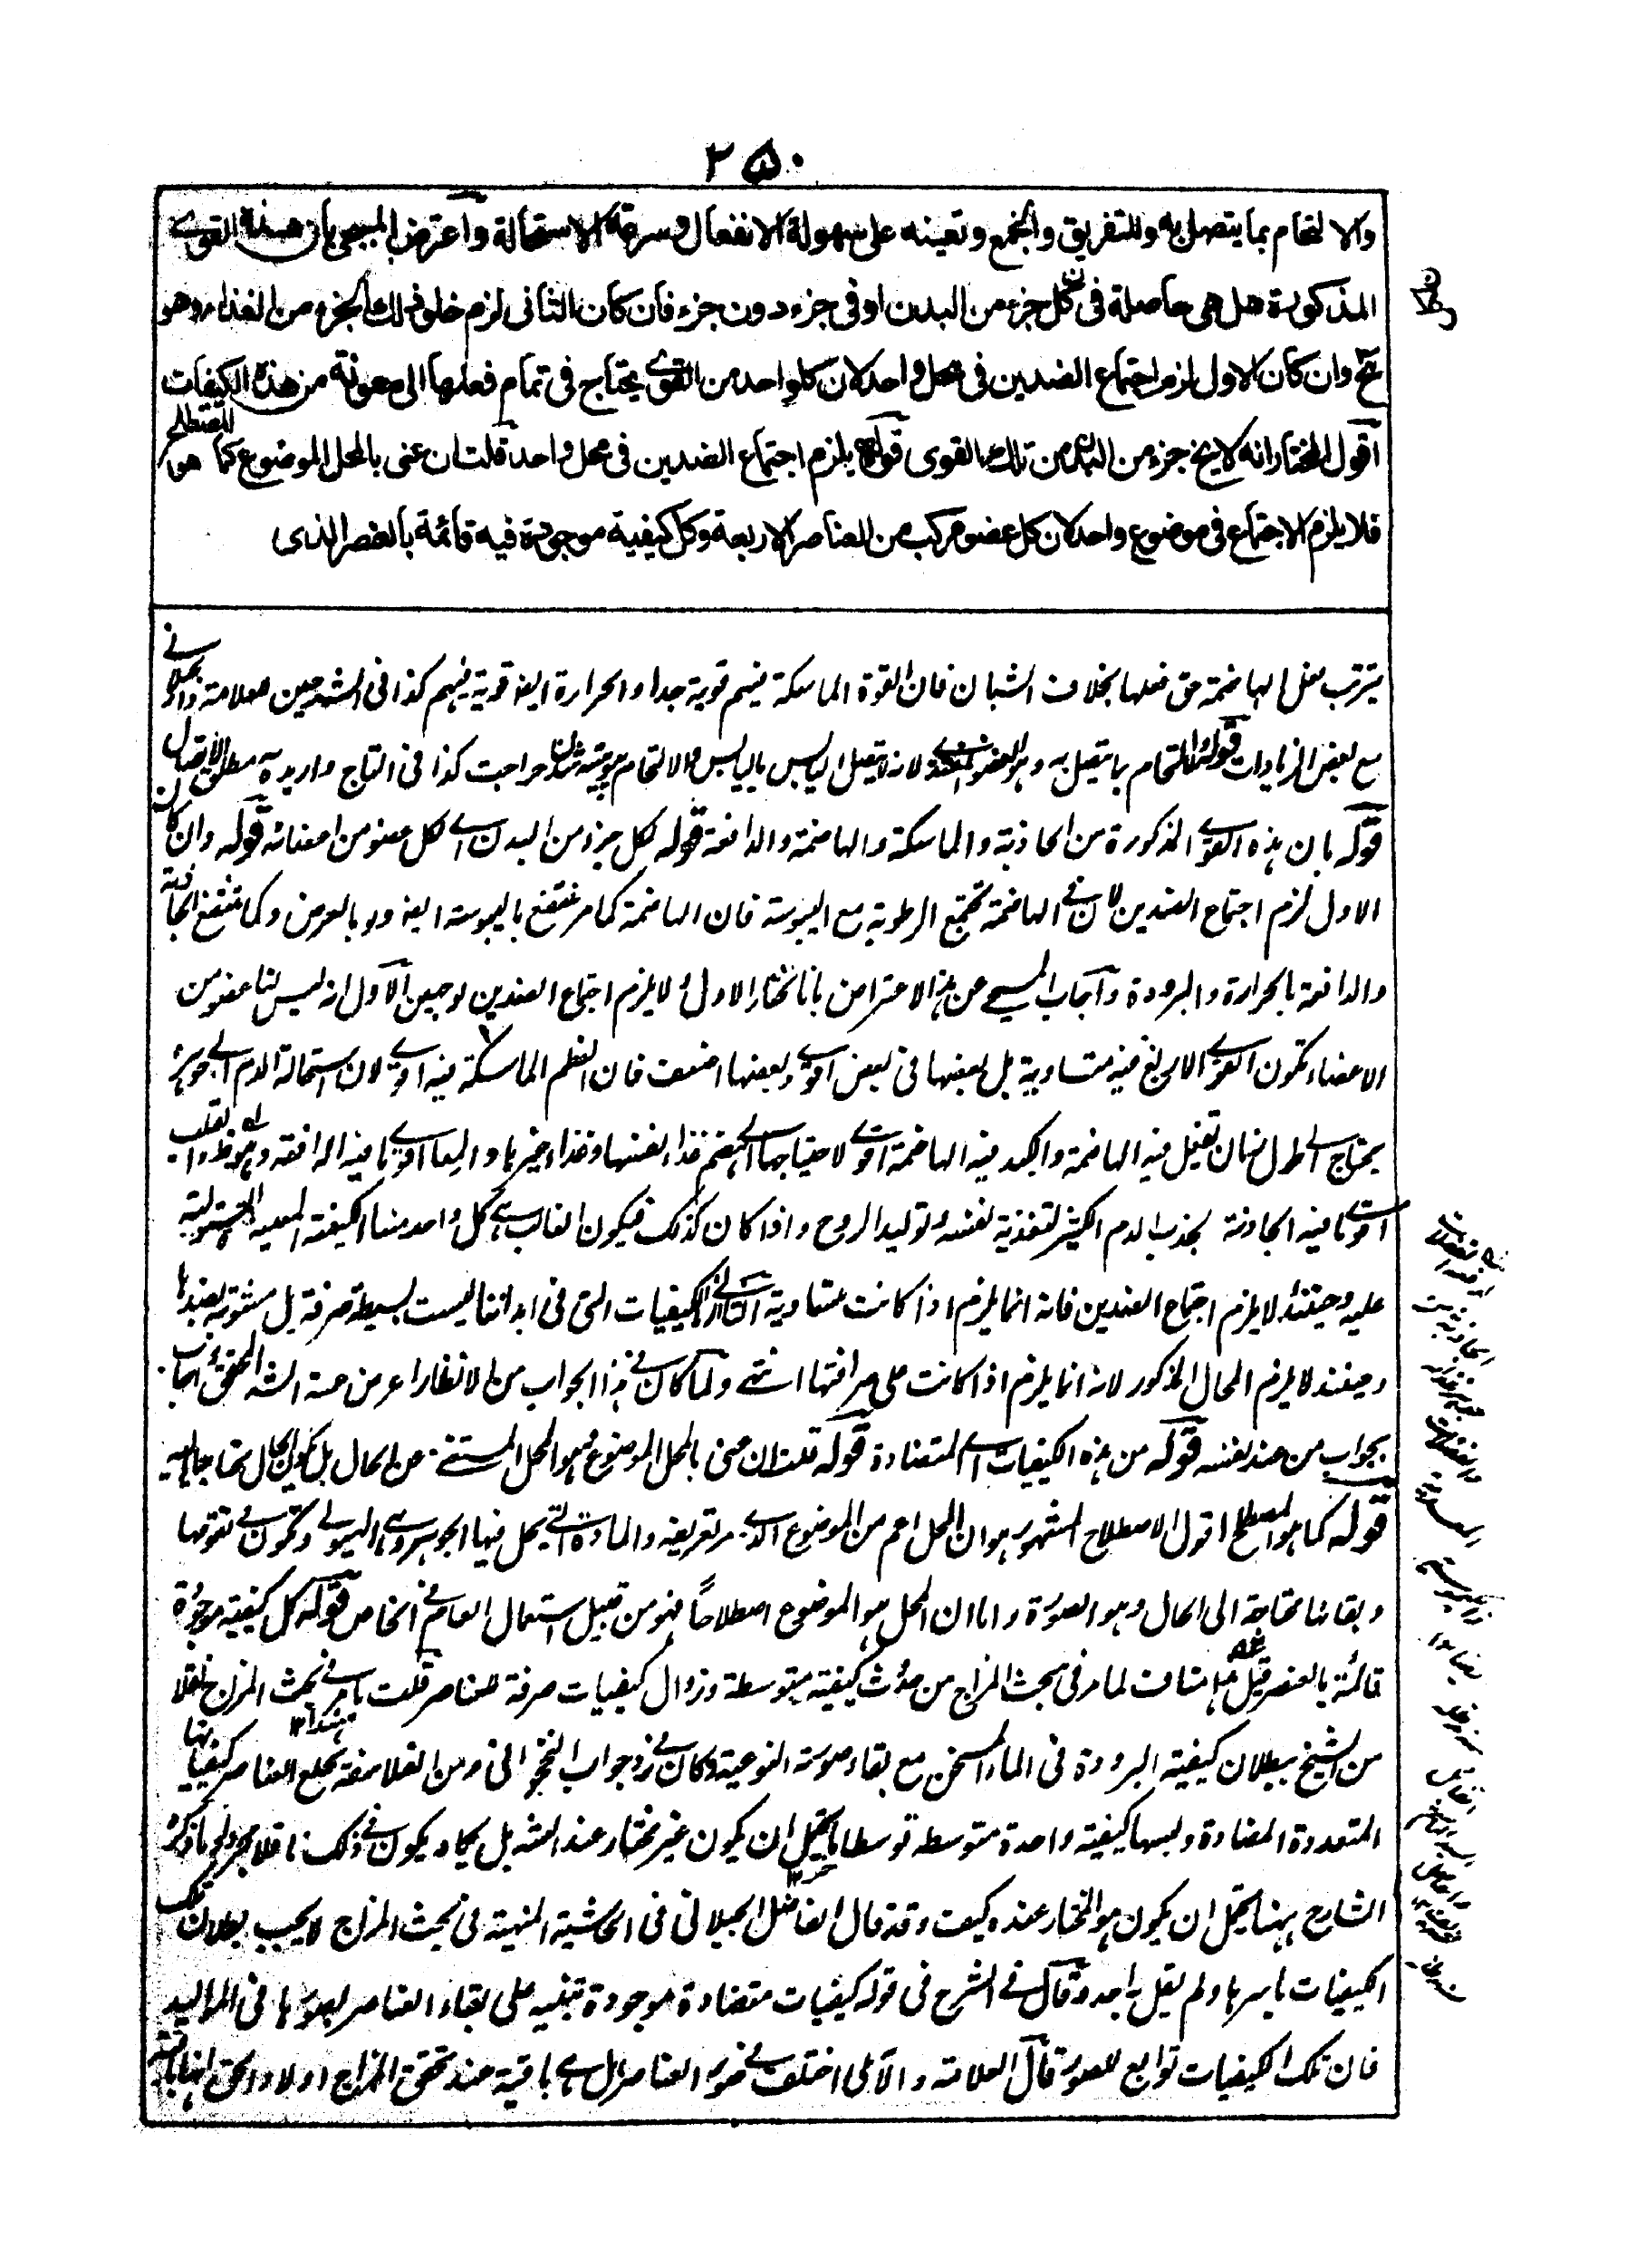 ٢٥٠
والالتحام بما يتصل به وللتفريق والجمع وتعينه على سهولة الانفعال وسرعة الاستحالة واعترض المسيحي بان هذه القوى
المذكورة هل هي حاصلة في كل جزء من البدن او في جزء دون جزء فان كان الثاني لزم خلو ذلك الجزء من الغذاء وهو
مح وان كان الاول لزم اجتماع الضدين في محل واحد لان كل واحد من القوى يحتاج في تمام فعلها الى معونة من هذه الكيفيات
اقول المختار انه لا يخ جزء من البدن من تلك القوى قوله يلزم اجتماع الضدين في محل واحد قلت ان عنى بالمحل الموضوع كما هو المصطلح
فلا يلزم الاجتماع في موضوع واحد لان كل عضو مركب من العناصر الاربعة وكل كيفية موجودة فيه قائمة بالعنصر الذى
يترتب فعل الهاضمة حق فعلها بخلاف الشبان فان القوة الماسكة فيهم قوية جدا والحرارة ايضا قوية فيهم كذا في الشرحين للعلامة والجيلاني
مع بعض الزيادات قوله والالتحام بما يتصل به وهو العضو لانه لا يتصل اليابس باليابس والالتحام جراحت كذا في التاج واريد به مطلق الاتصال
قوله بان هذه القوى المذكورة من الجاذبة والماسكة والهاضمة والدافعة قوله لكل جزء من البدن اي لكل عضو من اعضائه قوله وان كان
الاول لزم اجتماع الضدين لان في الهاضمة تجتمع الرطوبة مع اليبوسة فان الهاضمة كما مر تنتفع باليبوسة ايضا ولو بالعرض وكما تنتفع الجاذبة
والدافعة بالحرارة والبرودة واجاب المسيحي عن هذا الاعتراض بانا نختار الاول ولا يلزم اجتماع الضدين لوجهين الاول انه ليس لنا عضو من
الاعضاء تكون القوى الاربع فيه متساوية بل بعضها في بعض اقوى وبعضها اضعف فان العظم الماسكة فيه اقوى لان استحالة الدم الى جوهره
يحتاج الى طول زمان تفعل فيه الهاضمة والكبد فيه الهاضمة اقوى لاحتياجها الى هضم غذاء نفسها وغذاء غيرها والامعا اقوى ما فيه الدافعة وهو ظاهر والقلب
اقوى ما فيه الجاذبة لجذب الدم الكثير لتغذية نفسه ولتوليد الروح واذا كان كذلك فيكون الغالب في كل واحد منها الكيفية المعينة المستولية
عليه وحينئذ لا يلزم اجتماع الضدين فانه انما يلزم اذا كانت متساوية الثاني ان الكيفيات التي في ابداننا ليست بسيطة صرفة بل مشوبة بضدها
وحينئذ لا يلزم المحال المذكور لانه انما يلزم اذا كانت على صرافتها انتهى ولما كان في هذا الجواب من الانظار اعرض عنه الشارح المحقق واجاب
بجواب من عند نفسه قوله من هذه الكيفيات اي المتضادة قوله قلت ان عنى بالمحل الموضوع وهو المحل المستغني عن الحال بل يكون الحال محتاجا اليه
قوله كما هو المصطلح اقول الاصطلاح المشهور هو ان المحل اعم من الموضوع الذي مر تعريفه والمادة التي يحل فيها الجوهر وهي الهيولى وتكون في تقومها
وبقائها محتاجة الى الحال وهو الصورة واما ان المحل هو الموضوع اصطلاحاً فهو من قبيل استعمال العام في الخاص قوله كل كيفية موجودة
قائمة بالعنصر قيل هذا مناف لما مر في بحث المزاج من حدوث كيفية متوسطة وزوال كيفيات صرفة للعناصر قلت ما مر في بحث المزاج نقلا
من الشيخ ببطلان كيفية البرودة في الماء المسخن مع بقاء صورته النوعية وكان في رد جواب الفخر الرازي ومن الفلاسفة بخلع العناصر كيفياتها
المتعددة المضادة ولبسها كيفية واحدة متوسطة توسطا ما يحتمل ان يكون غير مختار عند الشارح بل يكاد يكون في ذلك ناقلا مجردا وما ذكره
الشارح ههنا يحتمل ان يكون هو المختار عنده كيف وقد قال الفاضل الجيلاني في الحاشية المنهية في بحث المزاج لا يجب بطلان تلك
الكيفيات باسرها ولم يقل به احد وقال في الشرح في قوله كيفيات متضادة موجودة تنبيه على بقاء العناصر بصورها في المواليد
فان تلك الكيفيات توابع للصور قال العلامة والآملي اختلف في صور العناصر هل هي باقية عند تحقق المزاج اولا والحق انها باقية